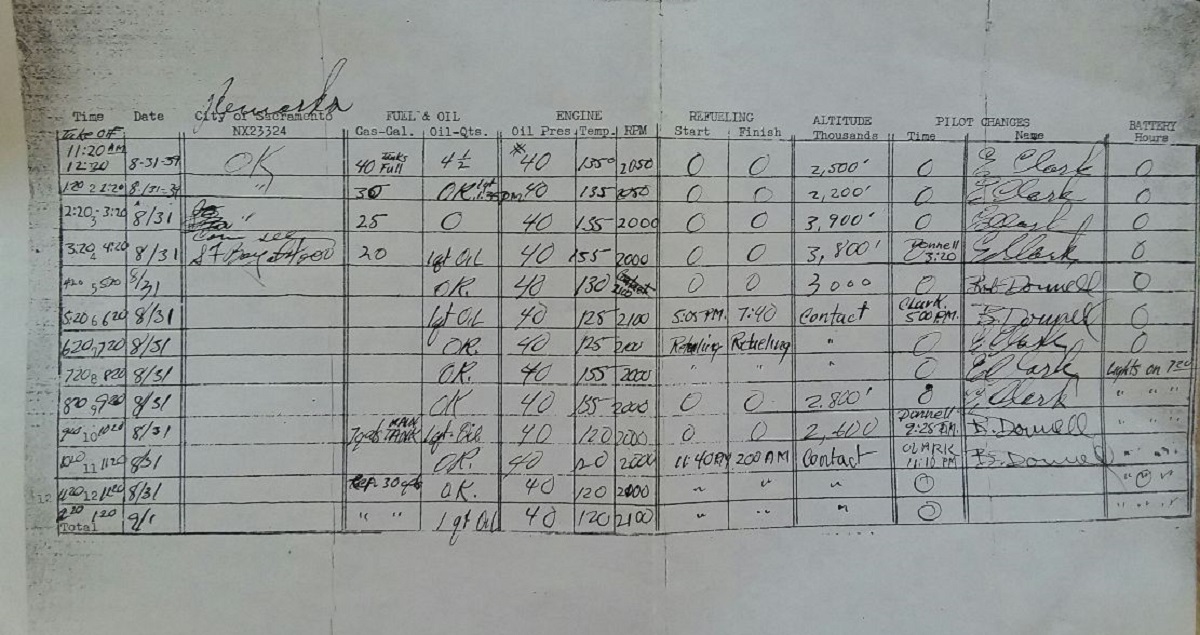 Remarks
Time Date City of Sacramento FUEL & OIL ENGINE REFUELING ALTITUDE PILOT CHANGES BATTERY
Take Off NX23324 Gas-Gal. Oil-Qts. Oil Pres. Temp. RPM Start Finish Thousands Time Name Hours
11:20 AM
12:20 8-31-39 OK 40 Tanks Full 4 1/2 *40 135° 2050 0 0 2,500' 0 E Clark 0
1:20 2 2:20 8-31-39 " 30 OK 40 135 2050 0 0 2,200' 0 E Clark 0
2:20 3 3:20 8/31 " 25 0 40 135 2000 0 0 3,900' 0 E Clark 0
3:20 4 4:20 8/31 Can see SF Bay at 4000 20 1qt Oil 40 155 2000 0 0 3,800' Donnell 3:20 E Clark 0
4:20 5 5:20 8/31 OK. 40 130 Contact 2100 0 0 3000 0 Donnell 0
5:20 6 6:20 8/31 1qt Oil 40 125 2100 5:05 P.M. 7:40 Contact Clark 5:00 P.M. B. Donnell 0
6:20 7 7:20 8/31 OK. 40 125 Refueling Refueling " 0 E Clark 0
7:20 8 8:20 8/31 O.K. 40 155 2000 " " " 0 E Clark Lights on 7:20
8:20 9 9:20 8/31 OK 40 135 2000 0 0 2.800' 0 E Clark " "
9:20 10 10:20 8/31 MAIN TANK 1qt-Oil 40 120 2000 0 0 2,600 Donnell 9:25 P.M. B. Donnell " "
10:20 11 11:20 8/31 O.K. 40 120 2000 11:40 PM 2:00 AM Contact CLARK 11:10 PM B. Donnell " "
12 11:20 12 12:20 8/31 30 gals O.K. 40 120 2000 " " " 0 " "
1:20 9/1 " " 1 qt Oil 40 120 2100 " " " 0 " "
Total